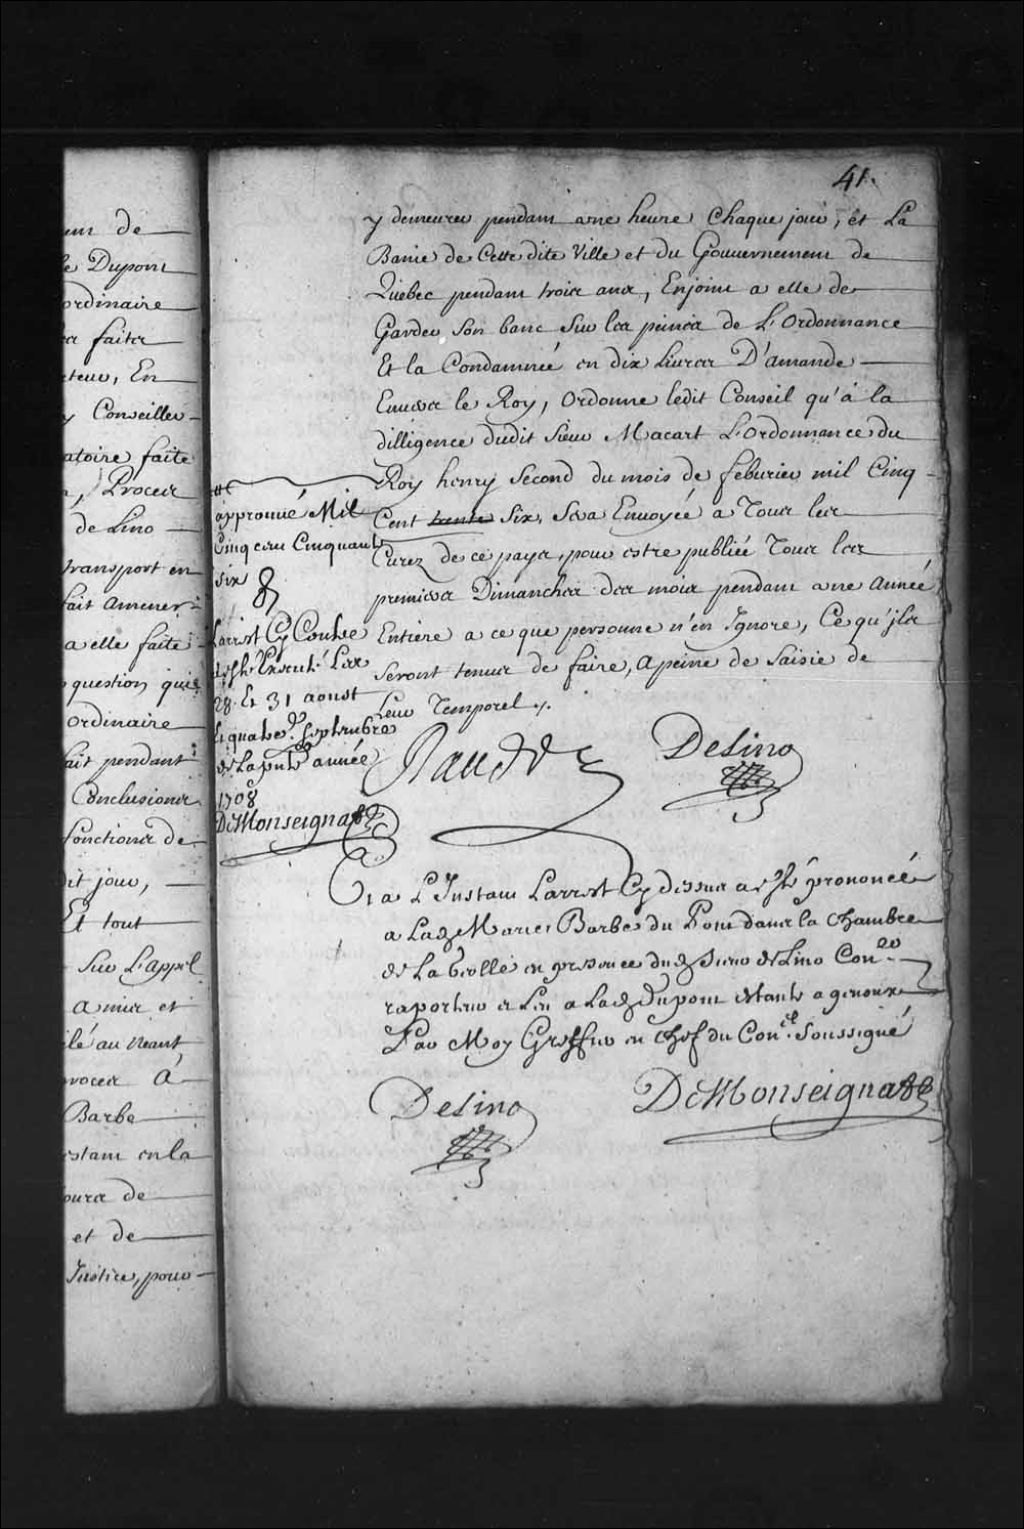 em de
Dupont
ordinaire
faitte
teur, En
Conseiller
atoire faite
Procez
de Lino
transport en
fait amener
a elle faite
question qui
ordinaire
ait pendant
Conclusions
fonctions de
dit jour,
Et tout
Sur L'appel
a mis et
lé au neant
procez A
Barbe
estant en la
ours de
et de
Justice, pour
41.
y demeurer pendant une heure Chaque jour, et La
Banie de Cette dite Ville et du Gouuernement de
Quebec pendant trois ans, Enjoint a elle de
Garder Son banc Sur les peines de L'Ordonnance
Et la Condamnée en dix Liures D'amande
Enuers le Roy, Ordonne ledit Conseil qu'à la
dilligence dudit Sieur Macart L'Ordonnance du
Roy henry Second du mois de feburier mil Cinq
Cent trente Six, Sera Enuoyée a Tous les
Curez de ce pays, pour estre publiée Tous les
premiers Dimanches des mois pendant une Année
Entiere a ce que personne n'en Ignore, Ce qu'jls
Seront tenus de faire, a peine de Saisie de
Leur Temporel ./.
approuué Mil
Cinq cens Cinquante
Six
Larrest Cy Contre
a esté Executé Les
28. Et 31 aoust
Et quatre 7.e Septembre
de La pnte année
1708
DeMonseignat
Raudot
DeLino
Et a L'Instant Larrest Cy dessus a esté prononcé
a Lad Marie Barbe du Pont dans la Chambre
de La Geolle en presence dud Sieur deLino Con.er
raporteur et Leu a Lad Dupont estante a genoux
Par Moy Greffier en chef du Con.el Soussigné
DeLino
DeMonseignat